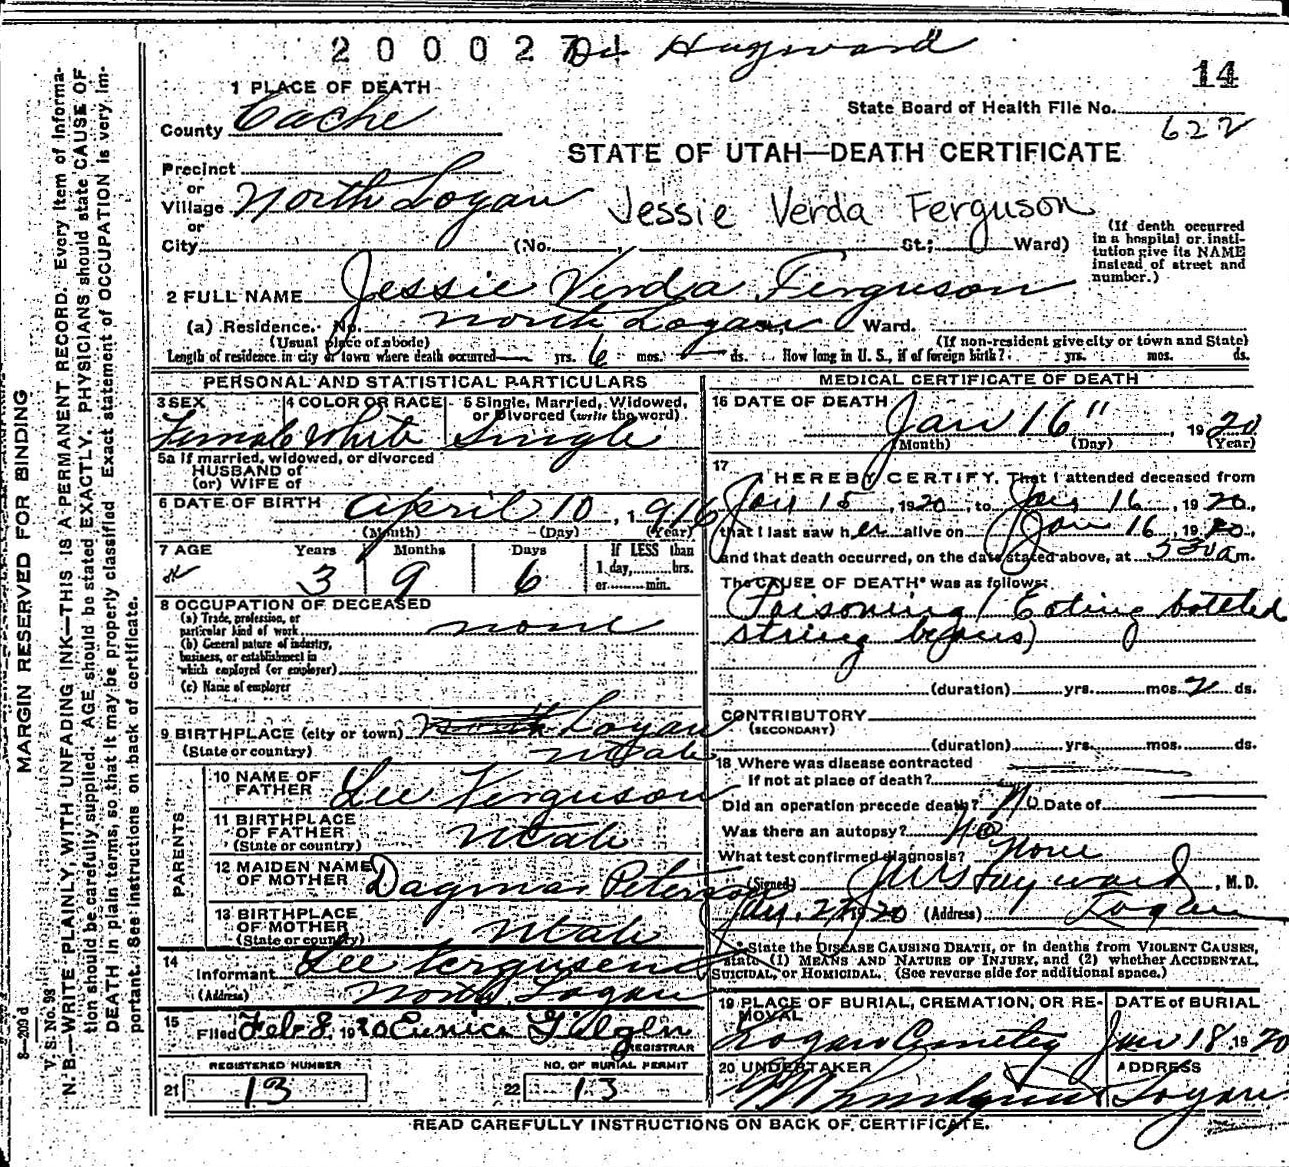 2000271 Dr Hayward
14
1 PLACE OF DEATH
State Board of Health File No.
622
County Cache
STATE OF UTAH—DEATH CERTIFICATE
Precinct
or
Village North Logan
Jessie Verda Ferguson
or
City (No. , St.; Ward)
(If death occurred in a hospital or institution give its NAME instead of street and number.)
2 FULL NAME Jessie Verda Ferguson
(a) Residence. No. North Logan Ward.
(Usual place of abode) (If non-resident give city or town and State)
Length of residence in city or town where death occurred — yrs. 6 mos. — ds. How long in U. S., if of foreign birth? yrs. mos. ds.
PERSONAL AND STATISTICAL PARTICULARS
3 SEX 4 COLOR OR RACE 5 Single, Married, Widowed, or Divorced (write the word).
Female White Single
5a If married, widowed, or divorced
HUSBAND of
(or) WIFE of
6 DATE OF BIRTH April 10, 1916
(Month) (Day) (Year)
7 AGE Years Months Days If LESS than
1 day, hrs.
or min.
3 9 6
8 OCCUPATION OF DECEASED
(a) Trade, profession, or
particular kind of work none
(b) General nature of industry,
business, or establishment in
which employed (or employer)
(c) Name of employer
9 BIRTHPLACE (city or town) Logan
(State or country) Utah
PARENTS
10 NAME OF FATHER Lee Ferguson
11 BIRTHPLACE OF FATHER
(State or country) Utah
12 MAIDEN NAME OF MOTHER Dagmar Peterson
13 BIRTHPLACE OF MOTHER
(State or country) Utah
14
Informant Lee Ferguson
(Address) North Logan
15
Filed Feb 8, 1920 Eunice G
REGISTRAR
REGISTERED NUMBER NO. OF BURIAL PERMIT
21 13 22 13
MEDICAL CERTIFICATE OF DEATH
16 DATE OF DEATH
Jan 16", 1920
(Month) (Day) (Year)
17
I HEREBY CERTIFY, That I attended deceased from
Jan 15, 1920, to Jan 16, 1920,
that I last saw her alive on Jan 16, 1920,
and that death occurred, on the date stated above, at 530 am.
The CAUSE OF DEATH* was as follows:
Poisoning (Eating bottled
string beans)
(duration) yrs. mos. 2 ds.
CONTRIBUTORY
(SECONDARY)
(duration) yrs. mos. ds.
18 Where was disease contracted
If not at place of death?
Did an operation precede death? No Date of
Was there an autopsy? No
What test confirmed diagnosis? None
(Signed) J W Hayward, M.D.
Jan. 1920 (Address) Logan
*State the DISEASE CAUSING DEATH, or in deaths from VIOLENT CAUSES,
state (1) MEANS AND NATURE OF INJURY, and (2) whether ACCIDENTAL,
SUICIDAL, or HOMICIDAL. (See reverse side for additional space.)
19 PLACE OF BURIAL, CREMATION, OR REMOVAL DATE OF BURIAL
Logan Cemetery Jan 18 1920
20 UNDERTAKER ADDRESS
Logan
READ CAREFULLY INSTRUCTIONS ON BACK OF CERTIFICATE.
MARGIN RESERVED FOR BINDING
N. B.—WRITE PLAINLY, WITH UNFADING INK—THIS IS A PERMANENT RECORD. Every item of information should be carefully supplied. AGE should be stated EXACTLY. PHYSICIANS should state CAUSE OF DEATH in plain terms, so that it may be properly classified. Exact statement of OCCUPATION is very important. See instructions on back of certificate.
V. S. No. 93